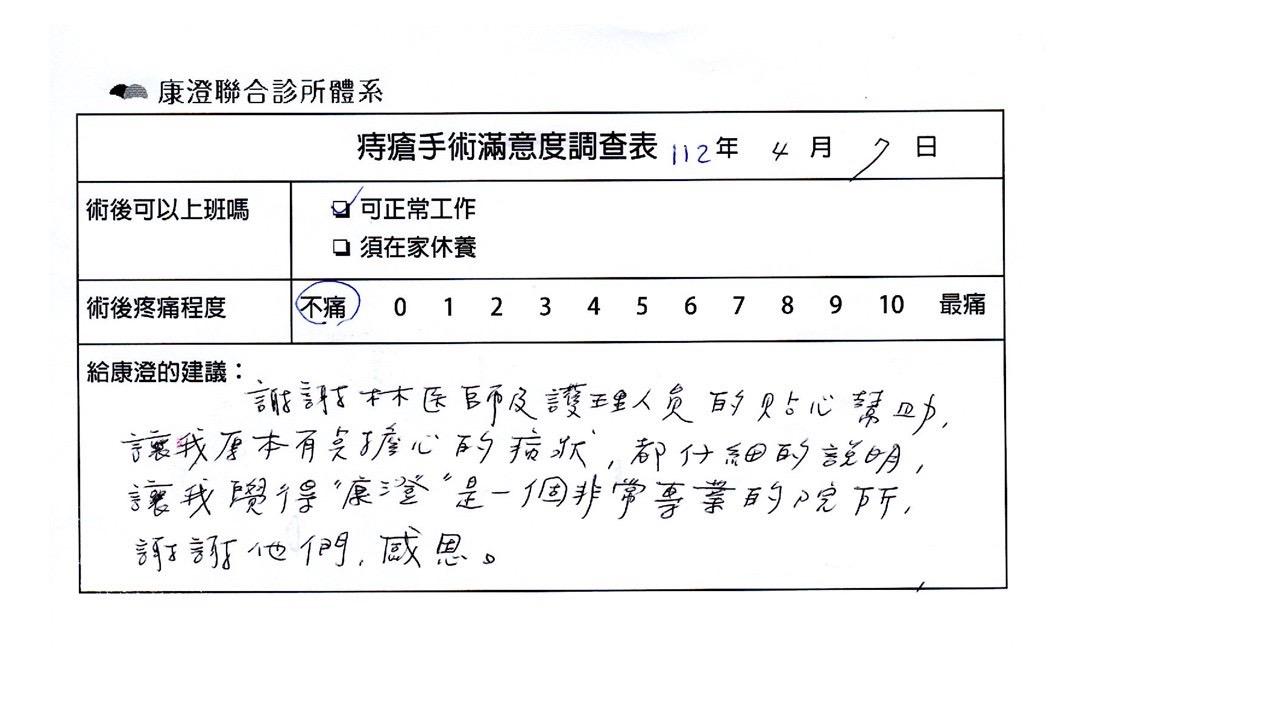 康澄聯合診所體系
痔瘡手術滿意度調查表 112年 4月 7日
術後可以上班嗎
可正常工作
須在家休養
術後疼痛程度 不痛 0 1 2 3 4 5 6 7 8 9 10 最痛
給康澄的建議：
謝謝林医師及護理人員的貼心幫助,
讓我原本有点擔心的症狀,都仔細的說明,
讓我覺得“康澄”是一個非常專業的院所,
謝謝他們,感恩。